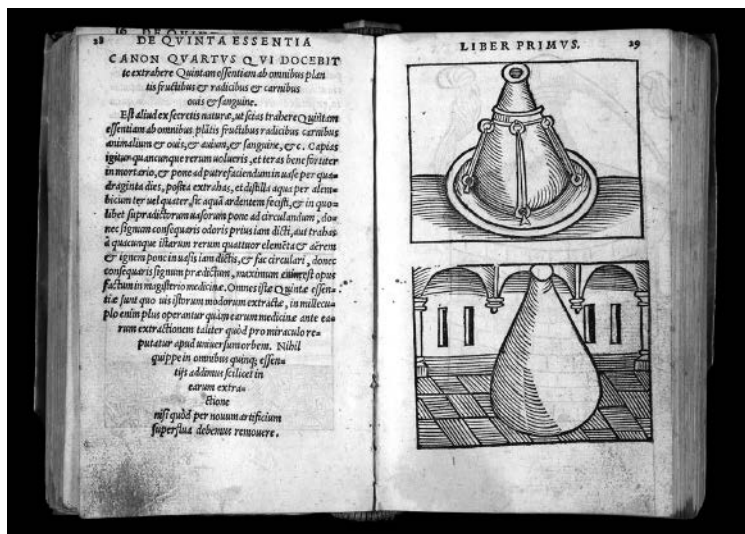 28 DE QVINTA ESSENTIA
CANON QVARTVS QVI DOCEBIT
te extrahere Quintam essentiam ab omnibus plan
tis fructibus & radicibus & carnibus
ouis & sanguine.
Est aliud ex secretis naturæ, ut scias trahere Quintam
essentiam ab omnibus plãtis fructibus radicibus carnibus
animalium & ouis, & auium, & sanguine, &c. Capias
igitur quancunque rerum uolueris, et teras bene fortiter
in mortario, & pone ad putrefaciendum in uase per qua=
draginta dies, postea extrahas, et distilla aqua per alem=
bicum ter uel quater, sic aquã ardentem fecisti, & in quo=
libet supradictorum uasorum pone ad circulandum, do=
nec signum consequaris odoris prius iam dicti, aut trahas
à quacunque istarum rerum quattuor elemẽta & aërem
& ignem pone in uasis iam dictis, & fac circulari, donec
consequaris signum prædictum, maximum enim est opus
factum in magisterio medicinæ. Omnes istæ Quintæ essen=
tiæ sunt quo uis istorum modorum extractæ, in millecu=
plo enim plus operantur quàm earum medicinæ ante ea=
rum extractionem taliter quòd pro miraculo re=
putatur apud uniuersum orbem. Nihil
quippe in omnibus quinq; essen=
tijs addimus scilicet in
earum extra=
ctione
nisi quòd per nouum artificium
superflua debemus remouere.
LIBER PRIMVS. 29